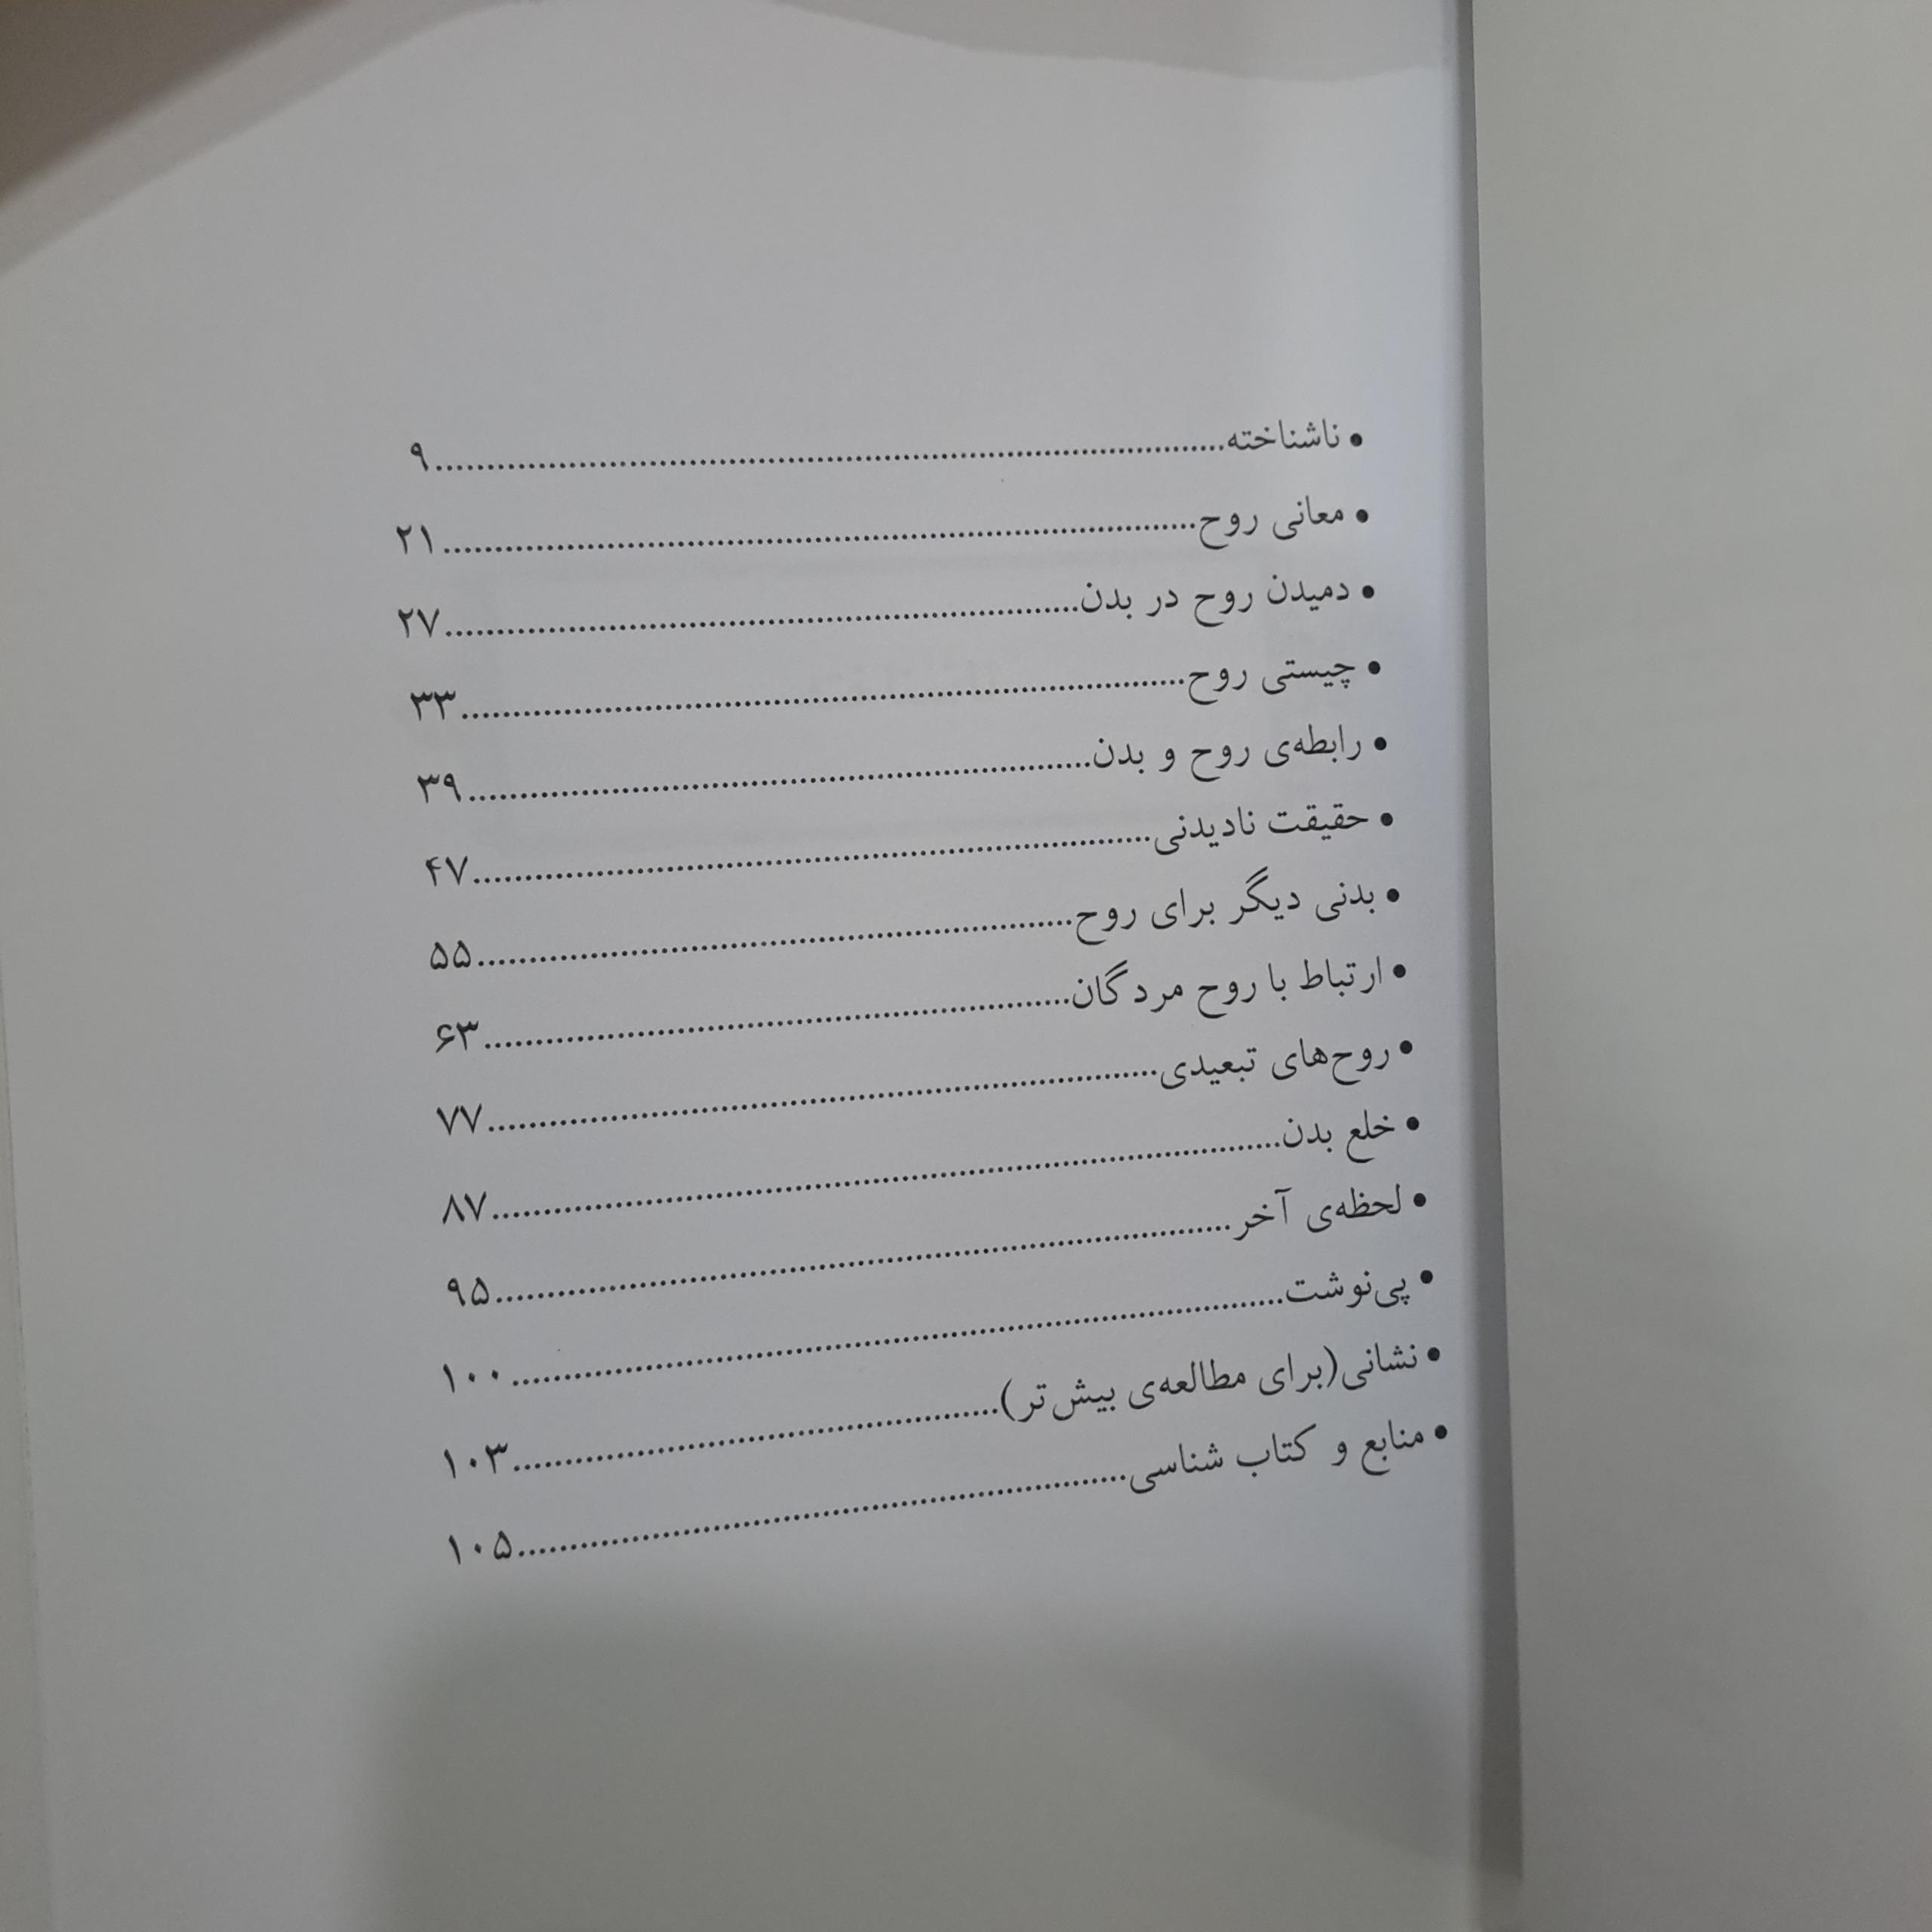 • ناشناخته..........۹
• معانی روح..........۲۱
• دمیدن روح در بدن..........۲۷
• چیستی روح..........۳۳
• رابطه‌ی روح و بدن..........۳۹
• حقیقت نادیدنی..........۴۷
• بدنی دیگر برای روح..........۵۵
• ارتباط با روح مردگان..........۶۳
• روح‌های تبعیدی..........۷۷
• خلع بدن..........۸۷
• لحظه‌ی آخر..........۹۵
• پی‌نوشت..........۱۰۰
• نشانی(برای مطالعه‌ی بیش‌تر)..........۱۰۳
• منابع و کتاب شناسی..........۱۰۵